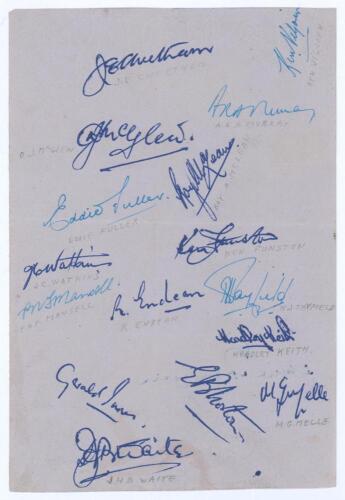 J E Cheetham
J.E. CHEETHAM
Ken Viljoen
KEN VILJOEN
ARA Murray
A.R.A MURRAY
DJ McGlew.
D.J McGLEW
Roy McLean
ROY A McLEAN
Eddie Fuller.
EDDIE FULLER
Ken Funston
KEN FUNSTON
JC Watkins
J.C WATKINS
PNF Mansell.
P.N.F MANSELL
R. Endean
R ENDEAN
H Tayfield
H.J TAYFIELD
Headley Keith
HEADLEY KEITH
Gerald Innes
M G Melle
M.G MELLE
JHB Waite
J.H.B WAITE